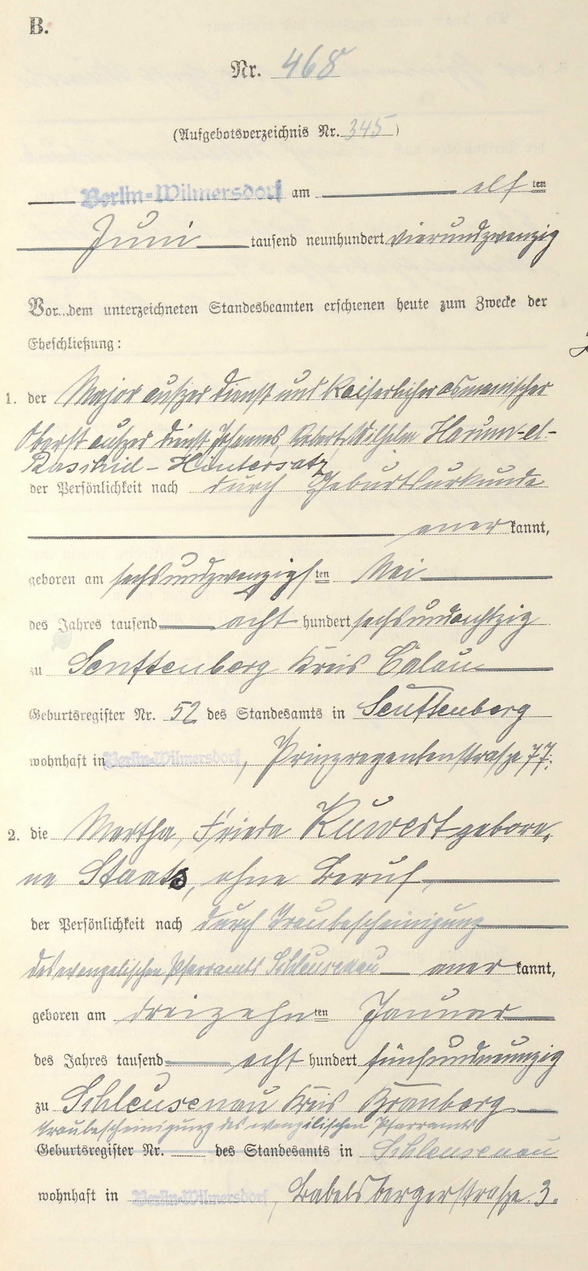 B.
Nr. 468
(Aufgebotsverzeichnis Nr. 345)
Berlin-Wilmersdorf am elften
Juni tausend neunhundert vierundzwanzig
Vor dem unterzeichneten Standesbeamten erschienen heute zum Zwecke der
Eheschließung:
1. der Major außer Dienst und Kaiserlicher osmanischer
Oberst außer Dienst Johannes, Robert, Wilhelm Harun-el-
Rasschid-Hintersatz
der Persönlichkeit nach durch Geburtsurkunde
anerkannt,
geboren am sechsundzwanzigsten Mai
des Jahres tausend acht hundert sechsundachtzig
zu Senftenberg Kreis Calau
Geburtsregister Nr. 52 des Standesamts in Senftenberg
wohnhaft in Berlin-Wilmersdorf, Prinzregentenstraße 77.
2. die Martha, Frieda Ruwert gebore-
ne Staats, ohne Beruf,
der Persönlichkeit nach durch Traubescheinigung
des evangelischen Pfarramts Schleusenau anerkannt,
geboren am dreizehnten Januar
des Jahres tausend acht hundert fünfundneunzig
zu Schleusenau Kreis Bromberg
Traubescheinigung des evangelischen Pfarramts
Geburtsregister Nr. des Standesamts in Schleusenau
wohnhaft in Berlin-Wilmersdorf, Babelsbergerstraße 3.